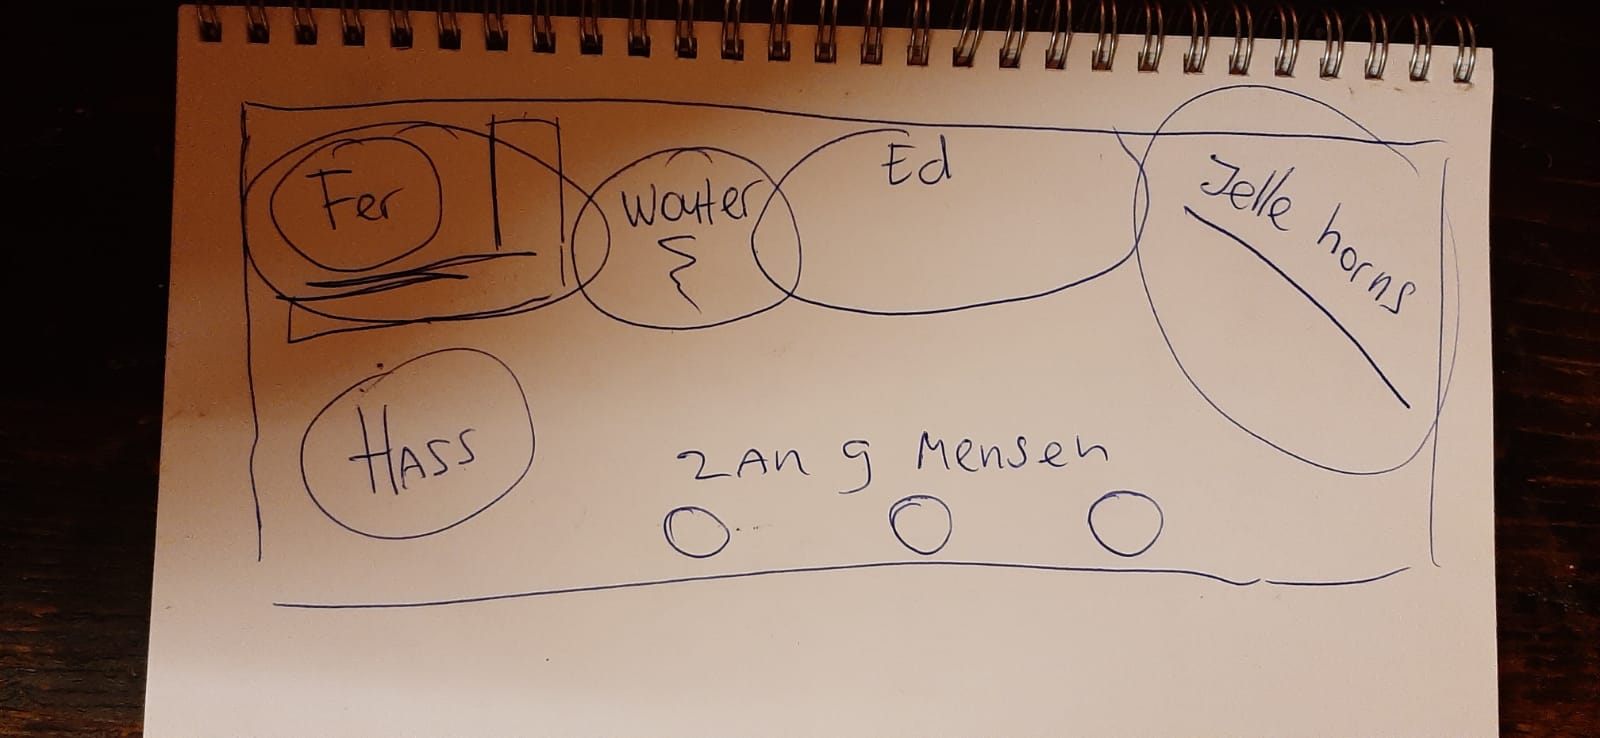 Fer
Wouter
Ed
Jelle horns
HASS
ZANg Mensen